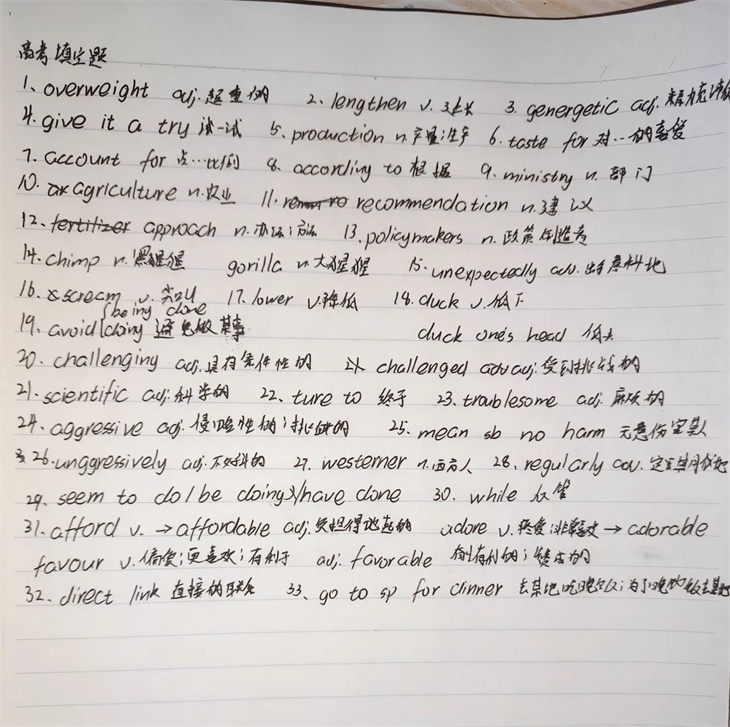 高考填空题
1、overweight adj.超重的 2、lengthen v.延长 3. genergetic adj.
4. give it a try 试一试 5. production n.产量;生产 6. taste for 对…的喜爱
7. account for 占…比例 8. according to 根据 9. ministry n. 部门
10. agriculture n.农业 11. recommendation n.建议
12. fertilizer approach n.办法;方法 13. policymakers n.政策制造者
14. chimp n.黑猩猩 gorilla n.大猩猩 15. unexpectedly adv.出乎意料地
16. scream v.尖叫 17. lower v.降低 18. duck v.低下
being done
19. avoid doing 避免做某事 duck one's head 低头
20. challenging adj.具有条件性的 challenged adj.受到挑战的
21. scientific adj.科学的 22. ture to 终于 23. troublesome adj.麻烦的
24. aggressive adj.侵略性的;挑衅的 25. mean sb no harm 无意伤害某人
26. unggressively adj. 27. westerner n.西方人 28. regularly adv.
29. seem to do/be doing/have done 30. while 尽管
31. afford v. → affordable adj.负担得起的 adore v.热爱;非常喜欢 → adorable
favour v.偏爱;更喜欢;有利于 adj. favorable 有利的;赞成的
32. direct link 直接的联系 33. go to sp for dinner 去某地吃晚饭;为了晚饭